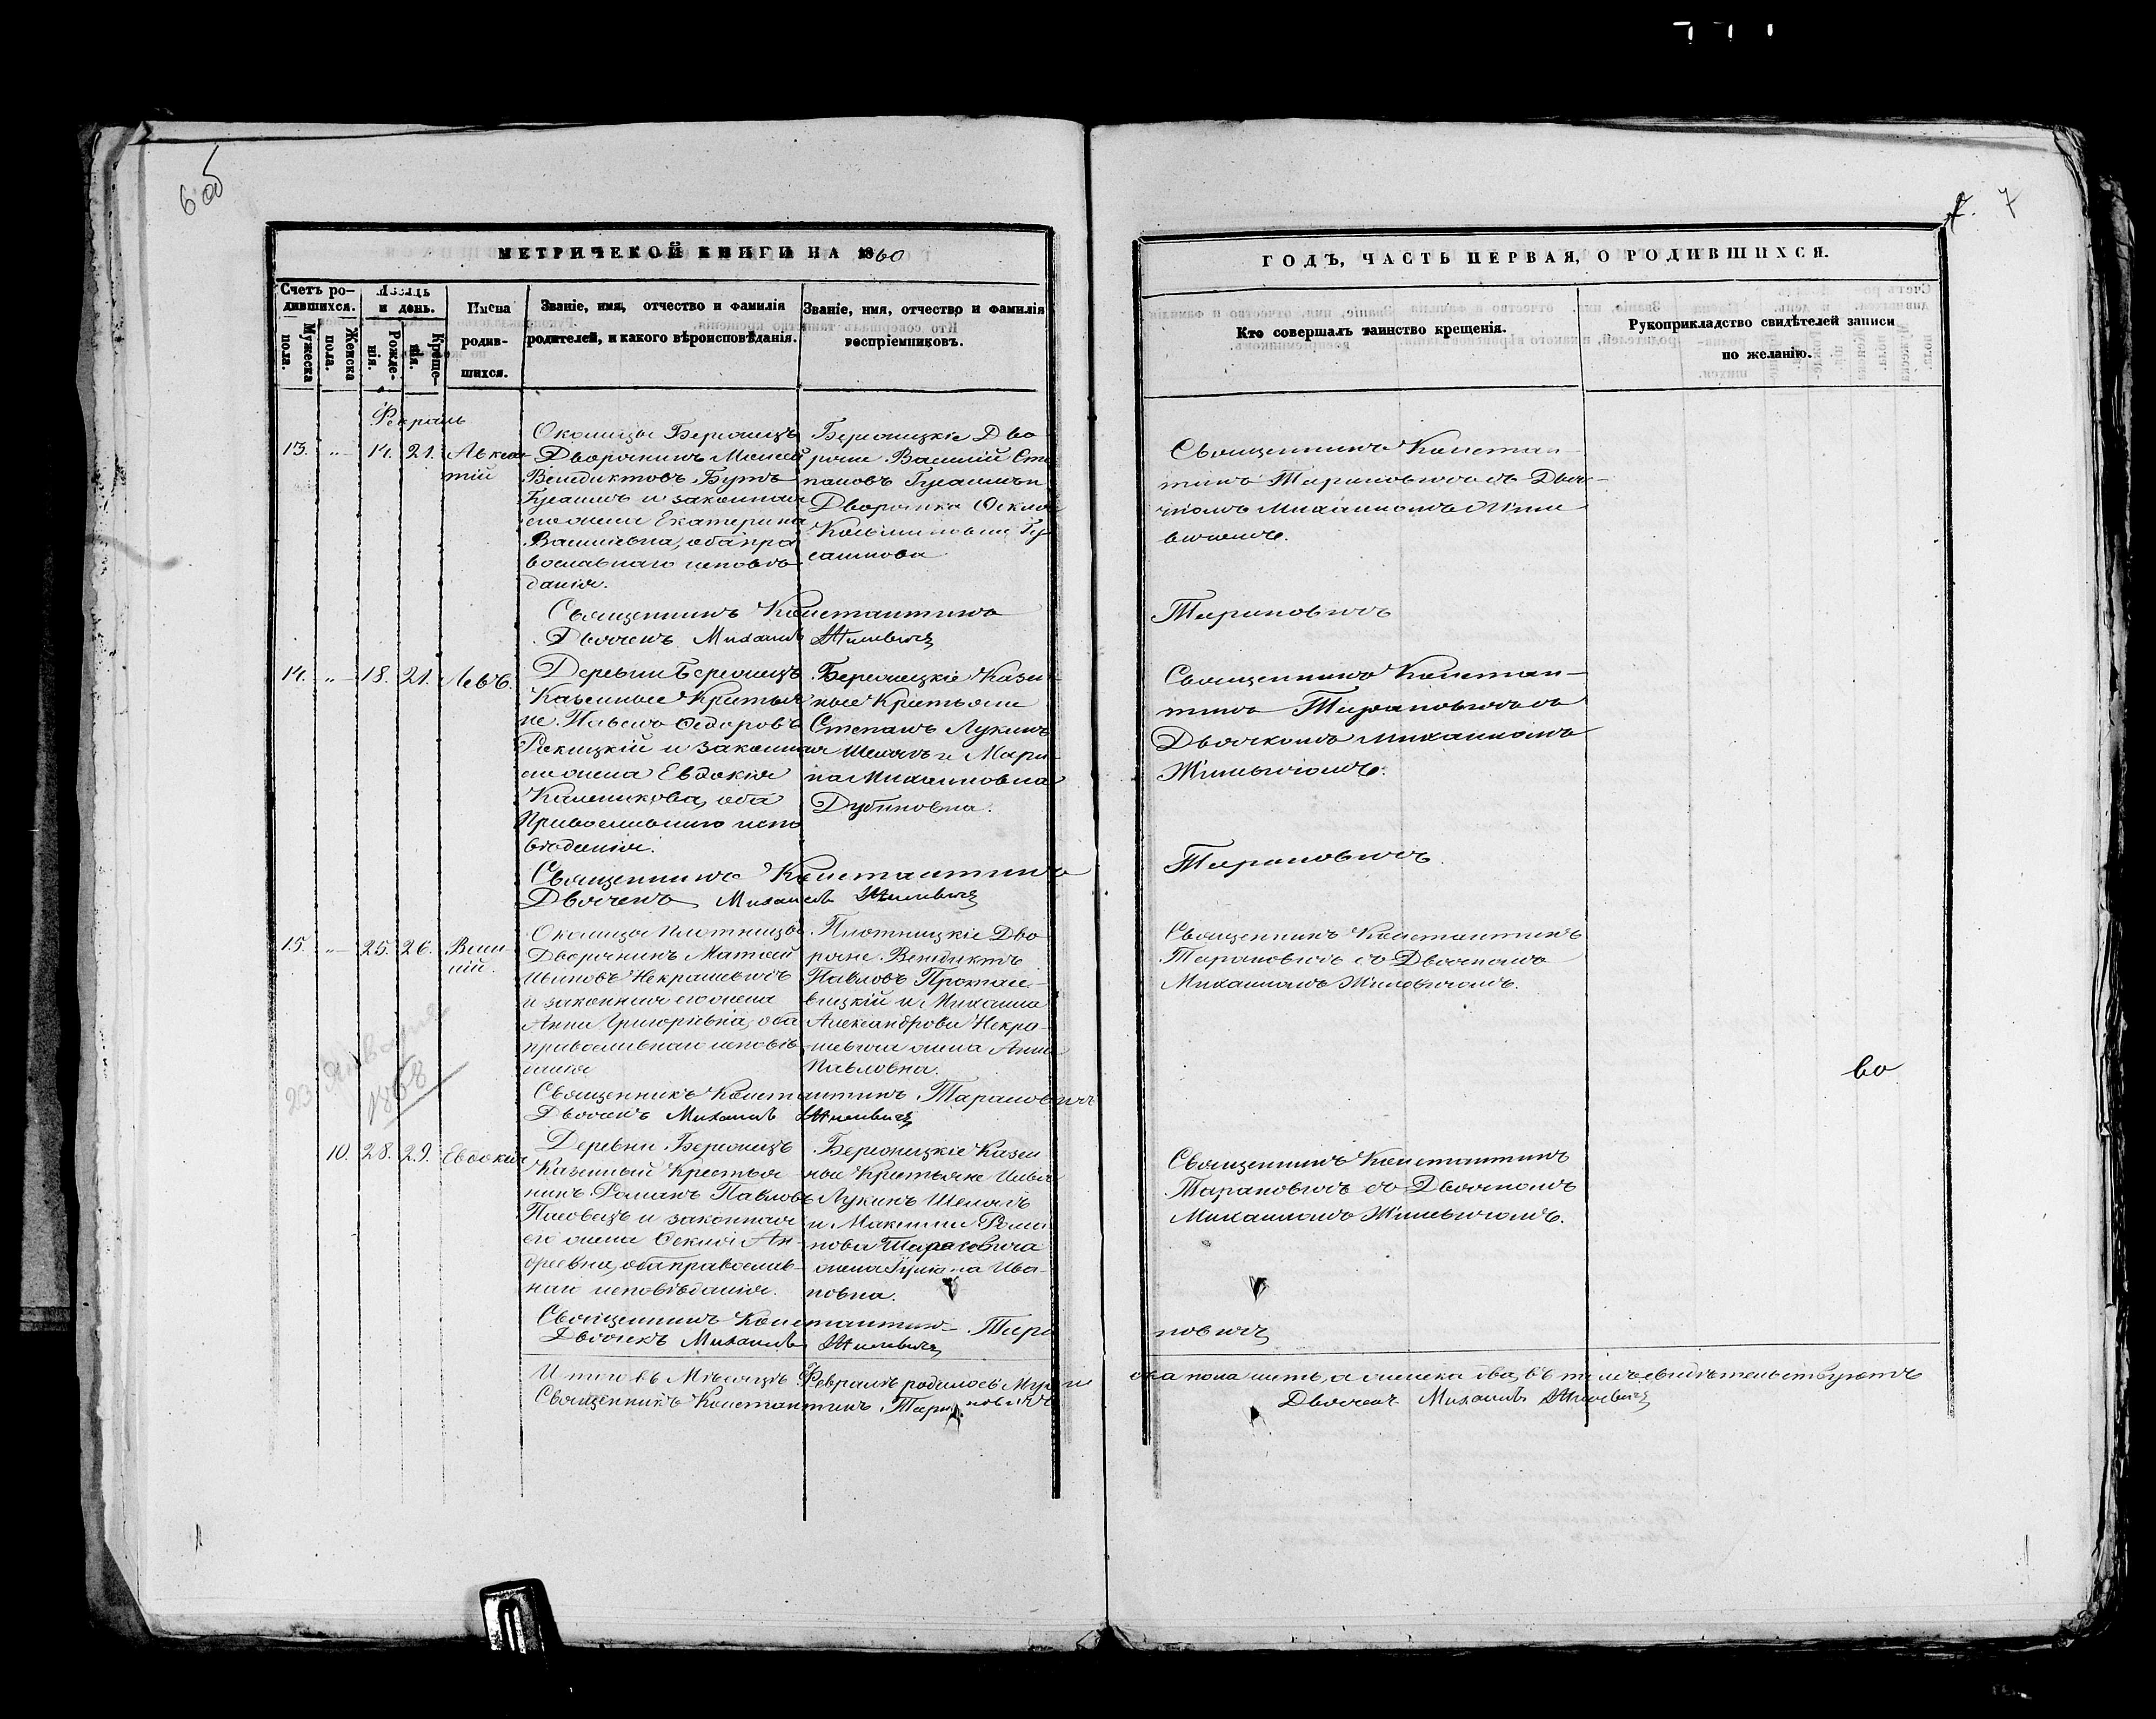 6 об
7. 7
МЕТРИЧЕКОЙ КНИГИ НА 1860
Счетъ ро-
дившихся.
Мужеска пола.
Женска пола.
Мѣсяцъ
и день.
Рожде-
нія.
Креще-
нія.
Имена
родив-
шихся.
Званіе, имя, отчество и фамилія
родителей, и какого вѣроисповѣданія.
Званіе, имя, отчество и фамилія
воспріемниковъ.
Февраль
13. "— 14. 21.
Околицы
Дворянинъ Моисей
Венедиктовъ Бутъ-
Гусаинъ и законная
его жена Екатерина
Васильевна, оба пра
вославнаго исповѣ-
данія.
Дво
ряне Василій Сте
пановъ Гусаинъ и
Дворянка Ѳекла
Гу
саинова
Священникъ Константинъ
Дьячекъ Михаилъ Жилевичъ
14. "— 18. 21. Левъ.
Деревни
Казенные Крестья
не Павелъ Ѳедоровъ
и законная
его жена Евдокія
оба
Православнаго испо
вѣданія.
Казен
ные Крестьяне
Степанъ Лукинъ
Шеломъ и Мари
на Михаиловна
Священникъ Константинъ
Дьячекъ Михаилъ Жилевичъ
15. "— 25. 26. Васи-
лій.
Околицы Плотницы
Дворянинъ Матѳей
Ивановъ Некрашевичъ
и законная его жена
Анна Григоріевна, оба
православнаго исповѣ
данія
Плотницкіе Дво
ряне Венедиктъ
Павловъ Протасе-
вицкій и Михаила
Александрова Некра-
шевича жена Анна
Павловна.
Священникъ Константинъ Тарановичъ
Дьячекъ Михаилъ Жилевичъ
23 Января
1868
10. 28. 29. Евдокія
Деревни
Казенный Крестья
нинъ Романъ Павловъ
и законная
его жена Ѳекла Ан-
дреевна, оба православ-
наго исповѣданія.
Казен
ные Крестьяне Иванъ
Лукинъ Шеломъ
и Максима Рома
нова Тарасевича
жена Іуліана Ива-
новна.
Священникъ Константинъ Тара
Дьячекъ Михаилъ Жилевичъ
Итого въ Мѣсяцѣ Февралѣ родилось Муже
Священникъ Константинъ Тарановичъ
ГОДЪ, ЧАСТЬ ПЕРВАЯ, О РОДИВШИХСЯ.
Кто совершалъ таинство крещенія.
Рукоприкладство свидѣтелей записи
по желанію.
Священникъ Констан-
тинъ Тарановичъ съ Дьяч-
комъ Михаиломъ Жиле
вичемъ.
Тарановичъ
Священникъ Констан-
тинъ Тарановичъ съ
Дьячкомъ Михаиломъ
Жилевичемъ.
Тарановичъ.
Священникъ Константинъ
Тарановичъ съ Дьячкомъ
Михаиломъ Жилевичемъ.
во
Священникъ Константинъ
Тарановичъ съ Дьячкомъ
Михаиломъ Жилевичемъ.
новичъ
ска пола а женска два, въ томъ свидѣтельствуютъ
Дьячекъ Михаилъ Жилевичъ